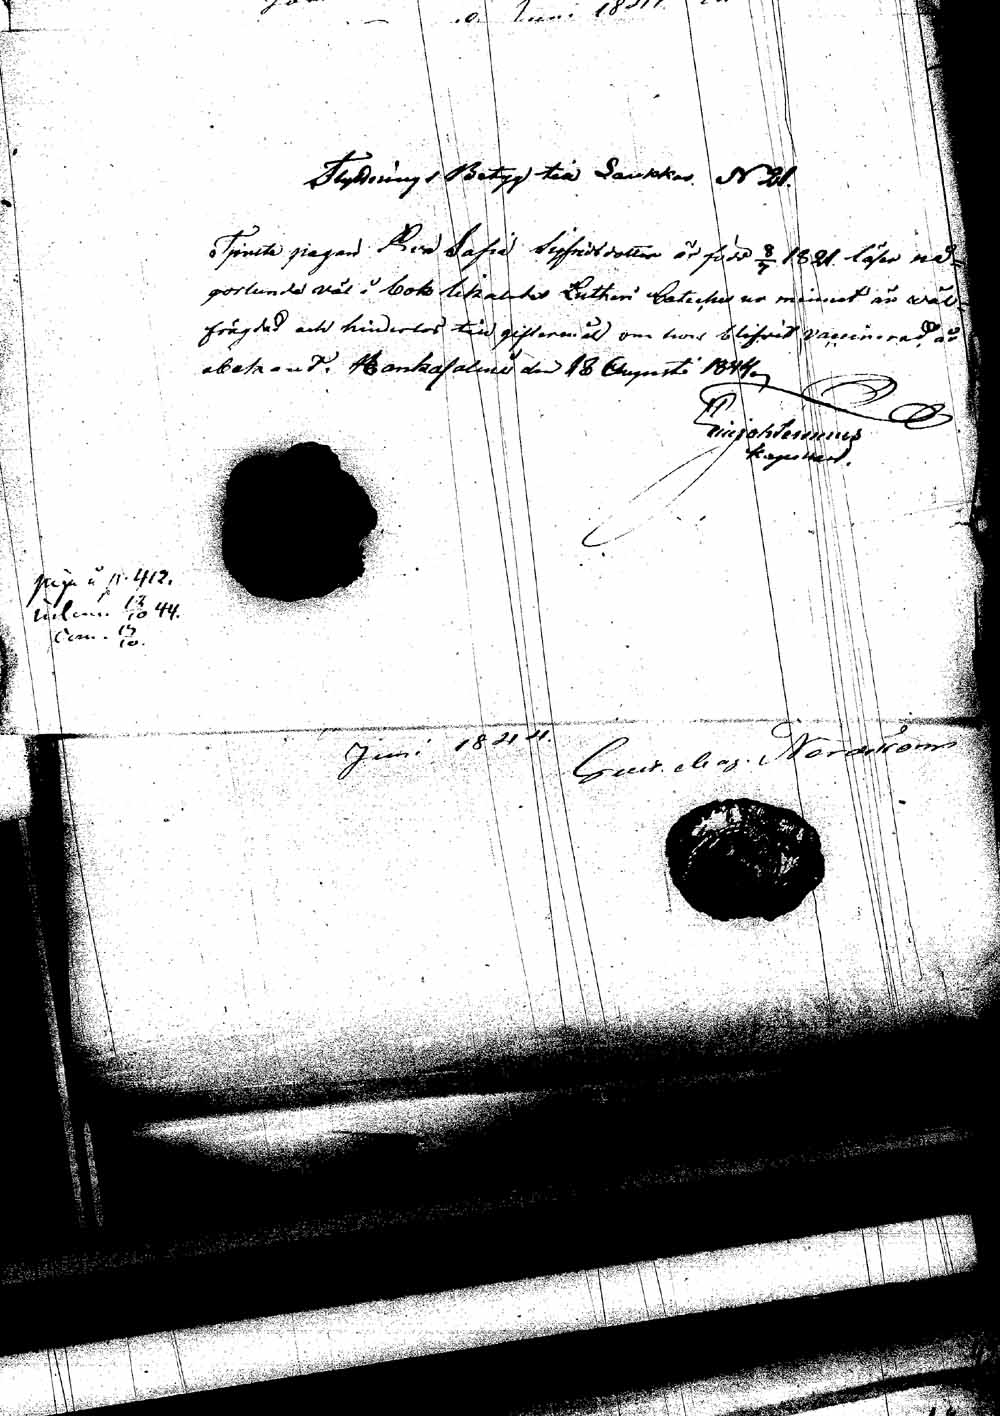 Juni 1844.
Flyttnings Betyg till Laukkas N 21.
Tjenste pigan Eva Sofia Sigfridsdotter är född 8/7 1821. läser nå-
gorlunda väl i bok likaledes Lutheri Cateches ur minnet är väl
frägdad och hinderlös till giftermål om hon blifvit vaccinerad är
obekant. Hankasalmi den 18 Augusti 1844.
kapellan.
piga å p. 412.
inlem. 13/10 44.
Com. 13/10.
Juni 1844. Gust. Mag. Nordström